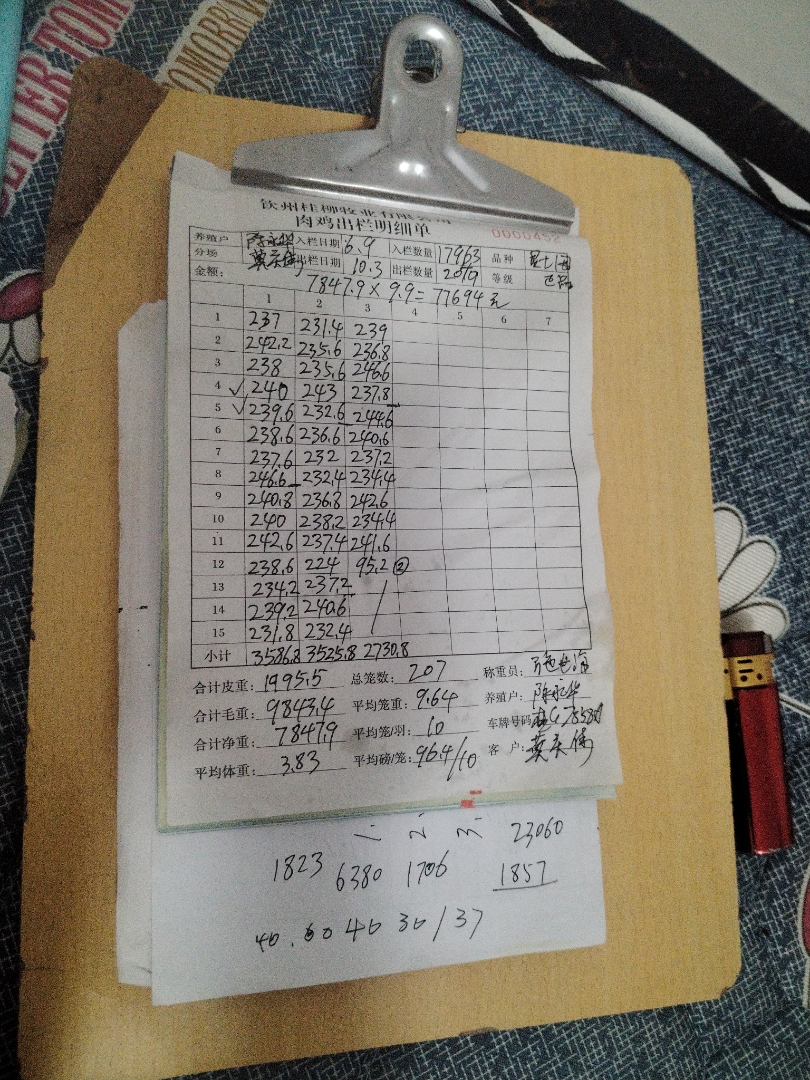 TTER TOM
TOMORROW
钦州桂柳牧业有限公司
肉鸡出栏明细单
0000452
养殖户 陈永华 入栏日期 6.9 入栏数量 17963 品种
分场 出栏日期 10.3 出栏数量 2019 等级
金额: 7847.9 × 9.9 = 77694元
1 2 3 4 5 6 7
1 237 231.4 239
2 242.2 235.6 236.8
3 238 235.6 246.6
4 √ 240 243 237.8
5 √ 239.6 232.6 244.6
6 238.6 236.6 240.6
7 237.6 232 237.2
8 246.6 232.4 234.4
9 240.8 236.8 242.6
10 240 238.2 234.4
11 242.6 237.4 241.6
12 238.6 224 95.2 ②
13 234.2 237.2
14 239.2 240.6
15 231.8 232.4
小计 3586.8 3525.8 2730.8
合计皮重: 1995.5 总笼数: 207 称重员:
合计毛重: 9843.4 平均笼重: 9.64 养殖户: 陈永华
合计净重: 7847.9 平均笼/羽: 10 车牌号码
平均体重: 3.83 平均磅/笼: 96.4/10 客户:
1. 2. 3. 23060
1823 6380 1706 1857
40.60 40 30/37